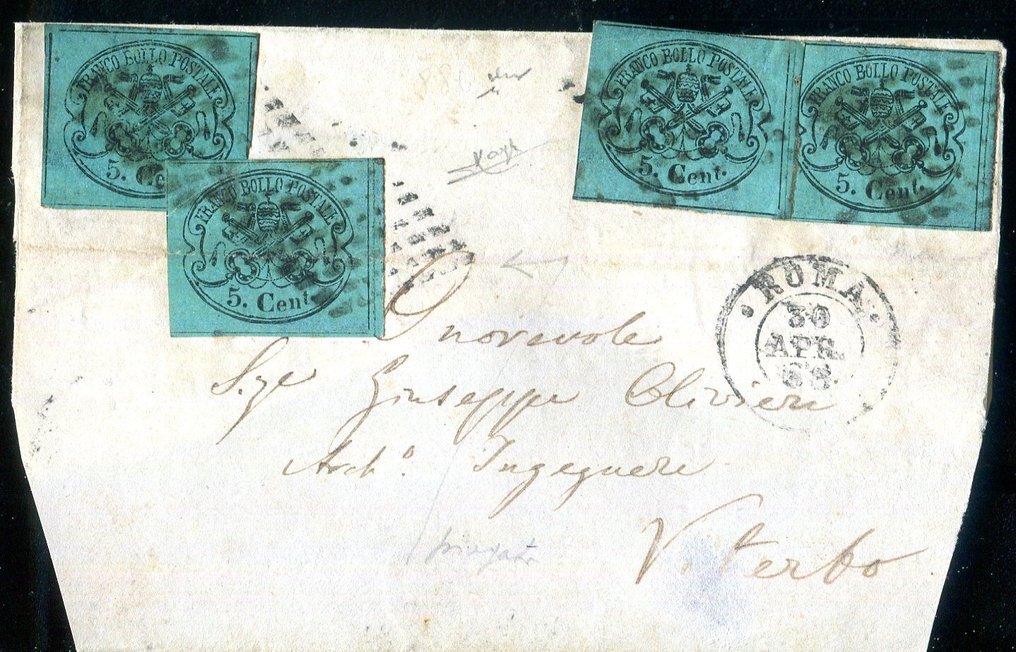 FRANCO BOLLO POSTALE
5. Cent.
FRANCO BOLLO POSTALE
5. Cent.
FRANCO BOLLO POSTALE
5. Cent.
FRANCO BOLLO POSTALE
5. Cent.
ROMA
30
APR.
68
Onorevole
Sigr Giuseppe Olivieri
Archo. Ingegnere
Viterbo